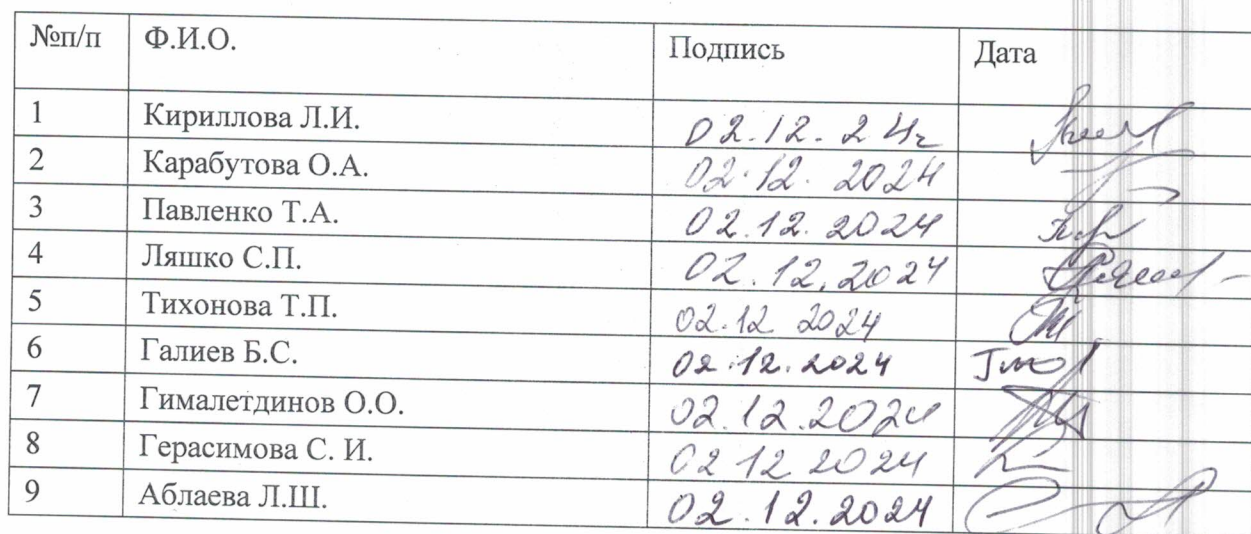 №п/п Ф.И.О. Подпись Дата
1 Кириллова Л.И. 02.12.24г
2 Карабутова О.А. 02.12.2024
3 Павленко Т.А. 02.12.2024
4 Ляшко С.П. 02.12.2024
5 Тихонова Т.П. 02.12 2024
6 Галиев Б.С. 02.12.2024
7 Гималетдинов О.О. 02.12.2024
8 Герасимова С. И. 02 12 2024
9 Аблаева Л.Ш. 02.12.2024